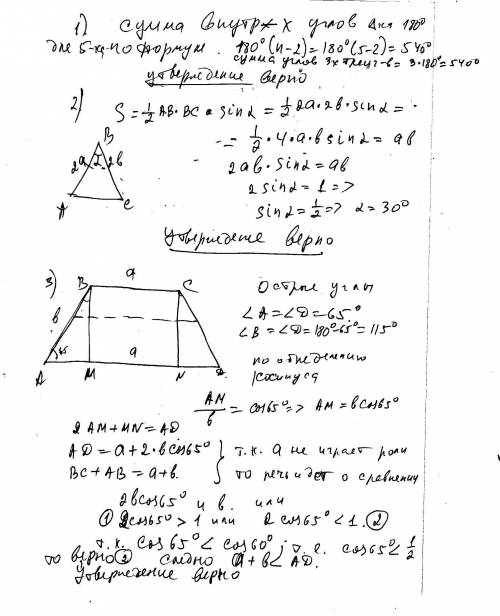 1) сумма внутр-х углов Δка 180°
для 5-уг-по формул. 180°(n-2)=180°(5-2)=540°
сумма углов 3х треуг-в= 3·180°=540°
утверждение верно
2) S=½AB·BC·sin2=½2a·2b·sin2=
=½·4·a·b sin2=ab
2ab·sin2=ab
2sin2=1=>
sin2=½=> 2=30°
B
2a 2 2b
A C
Утверждение верно
3) B a C
в
65
A M a N D
Острые углы
∠A=∠D=65°
∠B=∠D=180°-65°=115°
по определению
косинуса
AM/в=cos65°=> AM=вcos65°
2AM+MN=AD
AD=a+2·вcos65°
BC+AB=a+в.
т.к. a не играет роли
то речь идет о сравнении
2вcos65° и в. или
① 2cos65°>1 или 2cos65°<1. ②
т.к. cos65°<cos60°, т.е. cos65°<½
то верно ② следно a+в<AD.
Утверждение верно